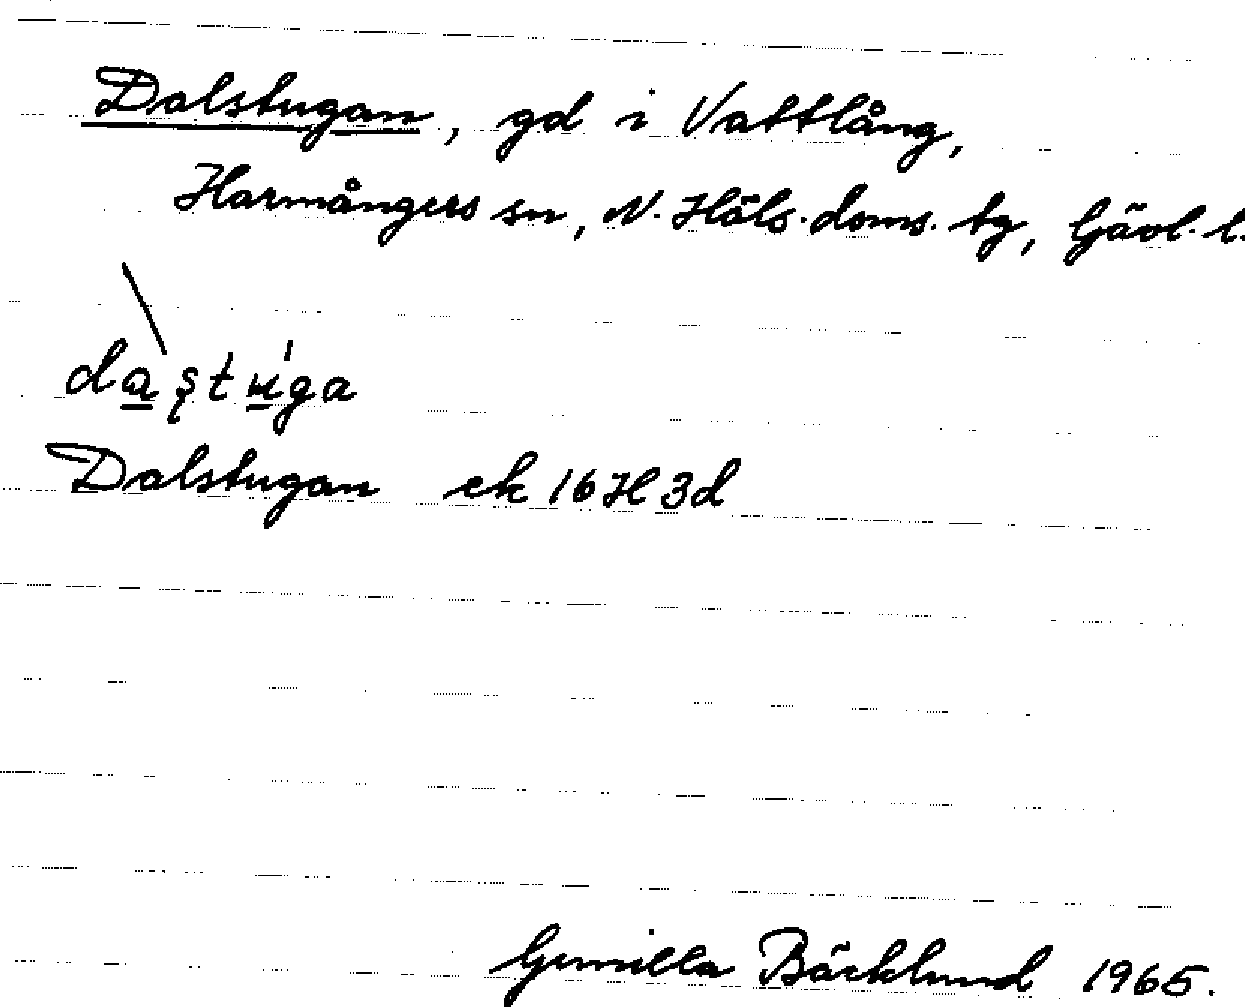 Dalstugan, gd i Vattlång,
Harmångers sn, N. Häls. doms. tg, Gävl. l.
daʂtu̲ga
Dalstugan ek 16H3d
Gunilla Bäcklund 1965.